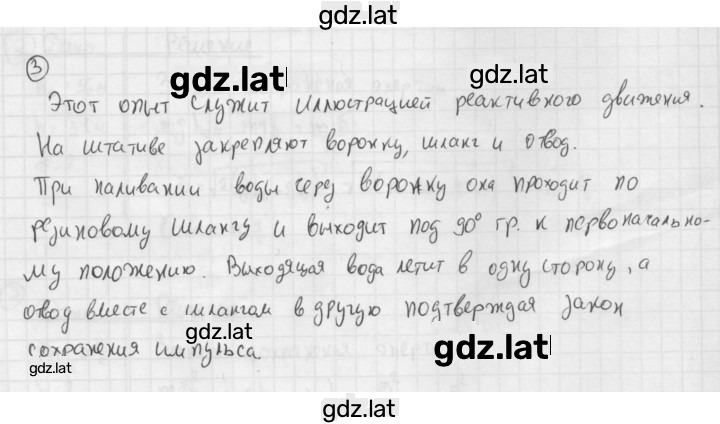 gdz.lat
3
gdz.lat
gdz.lat
Этот опыт служит иллюстрацией реактивного движения.
На штативе закрепляют воронку, шланг и отвод.
При наливании воды через воронку она проходит по
резиновому шлангу и выходит под 90° гр. к первоначально-
му положению. Выходящая вода летит в одну сторону, а
отвод вместе с шлангом в другую подтверждая закон
gdz.lat
сохранения импульса.
gdz.lat
gdz.lat
gdz.lat